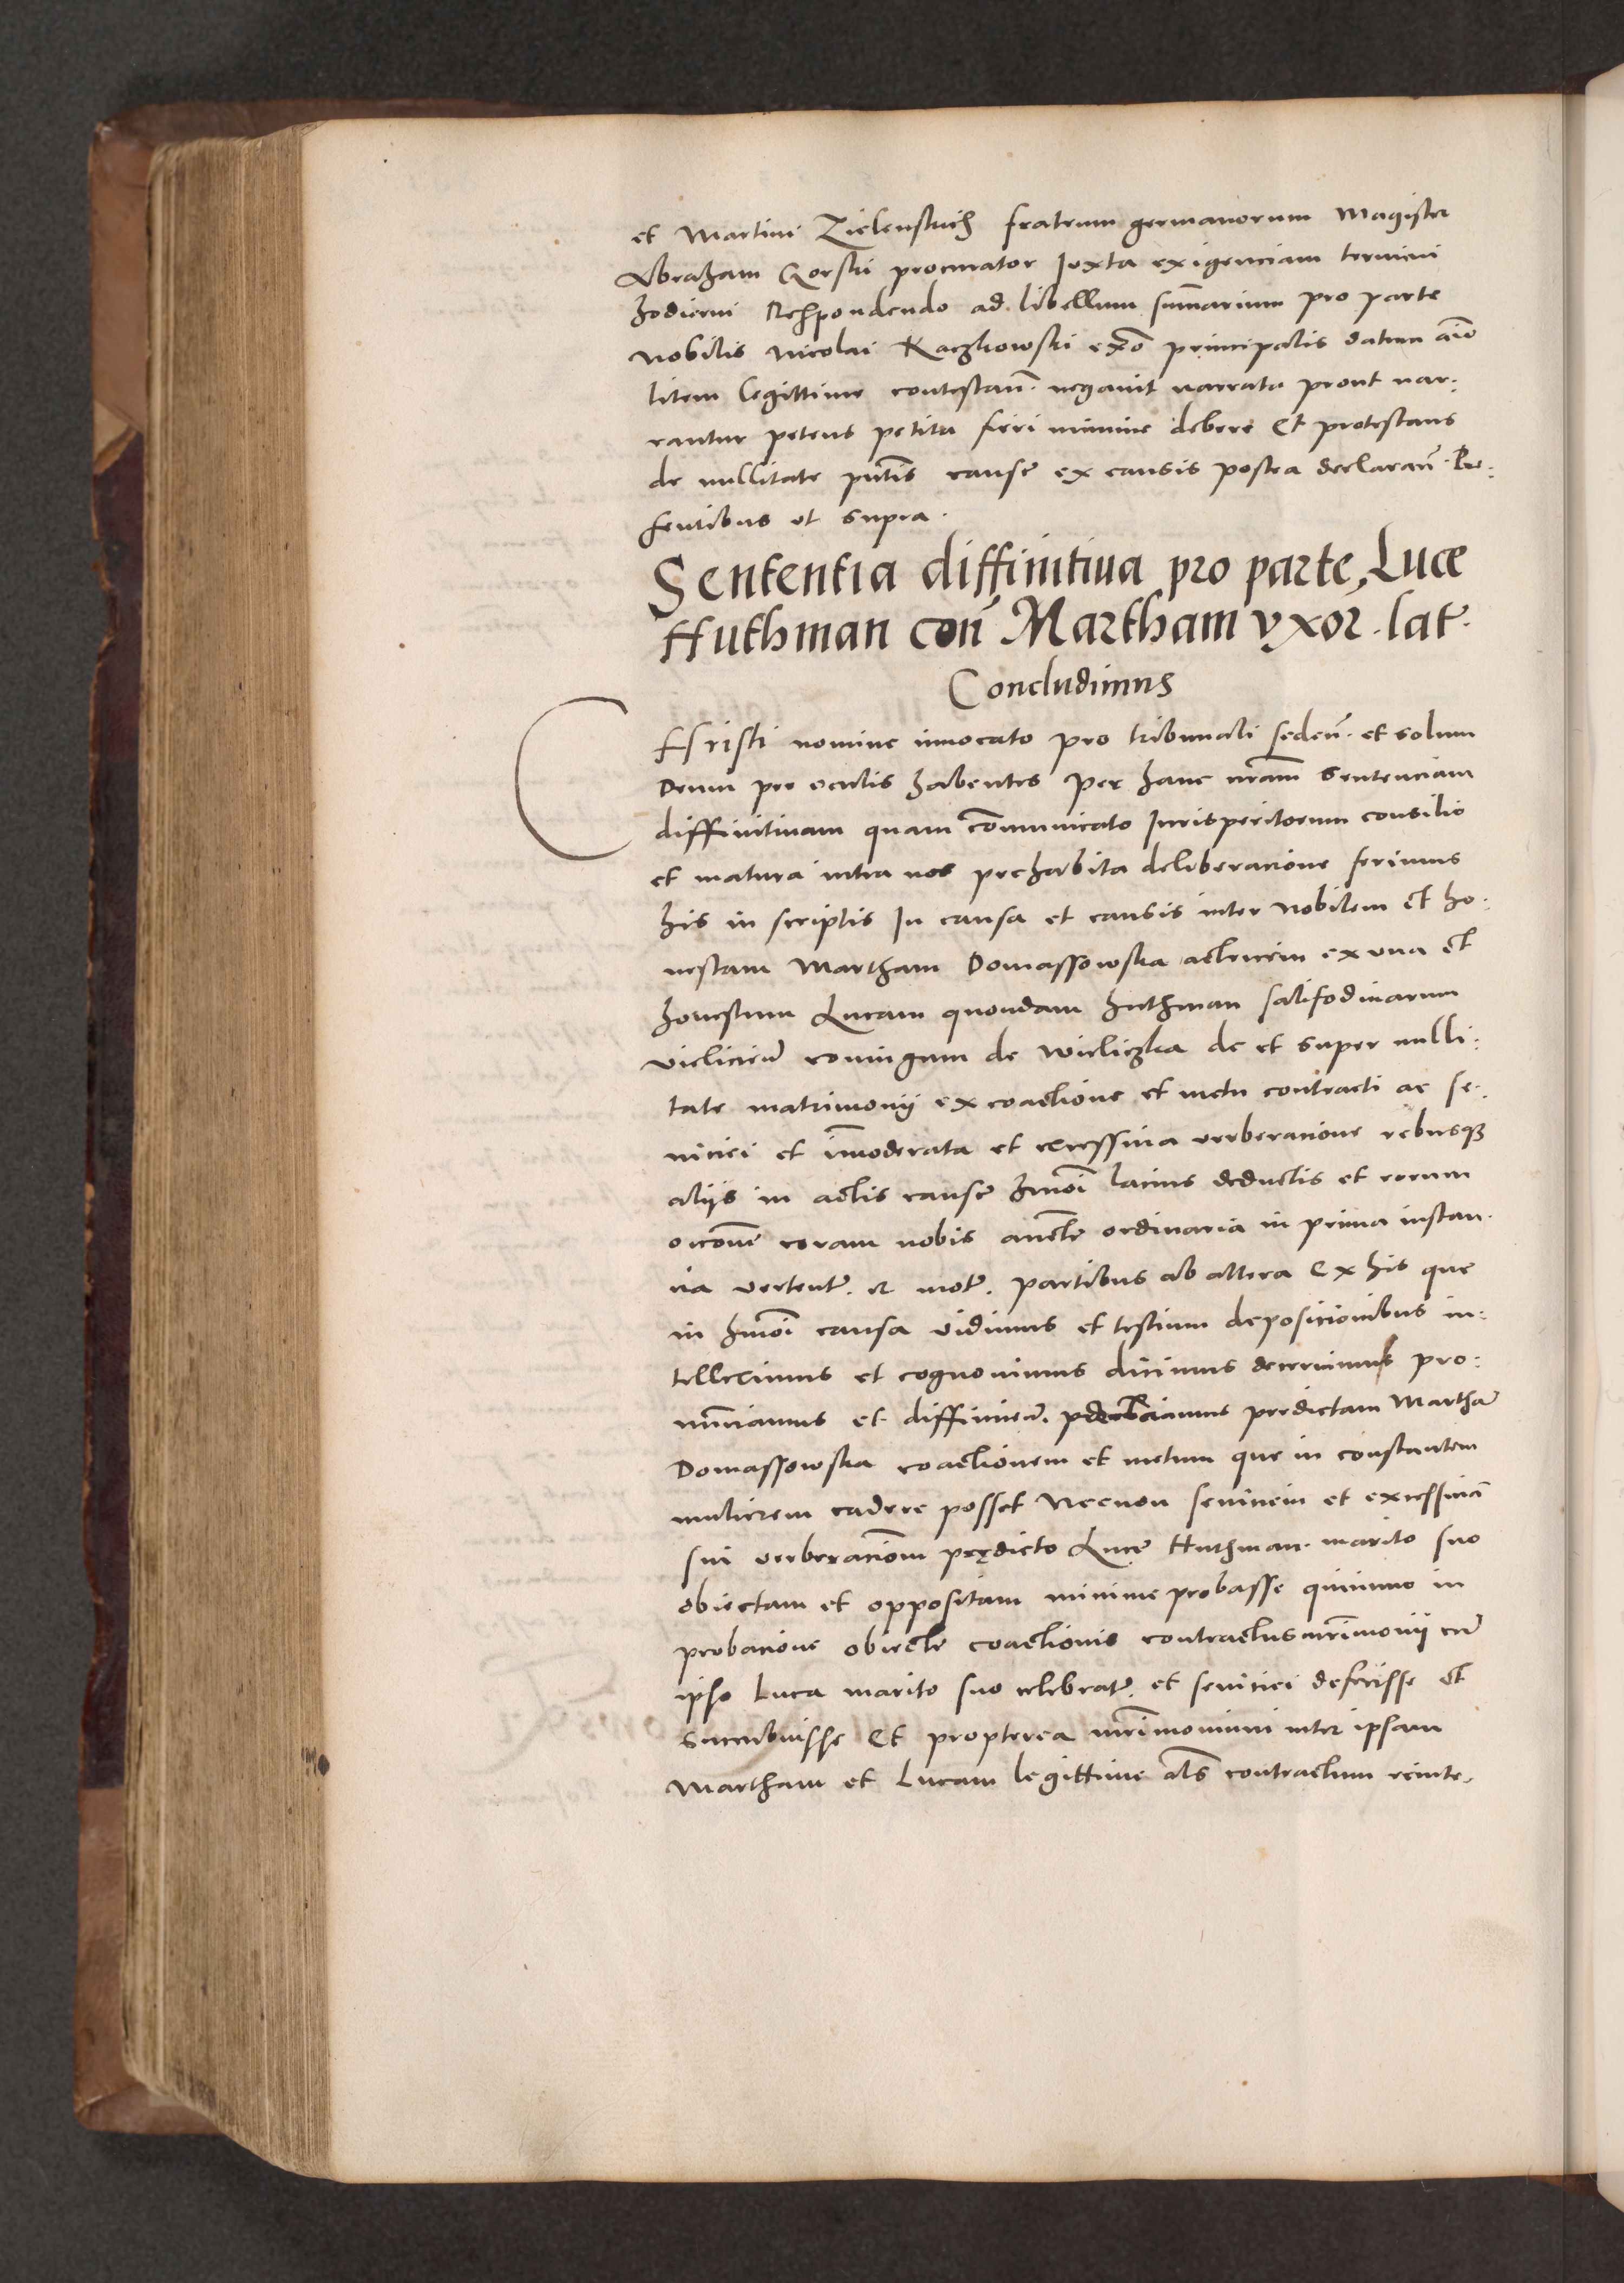 et Martini Zielenskich fratrum germanorum Magister
Abraham Gorski procurator Juxta exigenciam termini
hodierni Respondendo ad libellum sum̄arium pro parte
nobilis Nicolai Kaczkowski principalis datum aīo
litem legittime contestan̄. negavit narrata prout nar:
rantur petens petita fieri minime debere Et protestans
de nullitate pn̄tis cause ex causis postea declaran̄. Pre:
sentibus ut supra.
Sententia diffinitiua pro parte Luce
Huthman con̄ Martham vxor. lat.
Concludimus
Christi nomine inuocato pro tribunali seden̄. et solum
Deum pre oculis habentes per hanc nr̄am Sentenciam
diffinitiuam quam cōmunicato Jurisperitorum consilio
et matura intra nos prehabita deliberacione ferimus
his in scriptis In causa et causis inter Nobilem et ho:
nestam Martham Domassowska actricem ex vna et
honestum Lucam quondam huthman salifodinarum
vieliciēn̄ coniugum de Wieliczka de et super nulli:
tate matrimonij ex coactione et metu contracti ac se:
uiciei et īmoderata et excessiua verberacione rebusq3
alijs in actis cause hmōi lacius deductis et eorum
occōne coram nobis aucte ordinaria in prima instan:
cia verten̄t. et mot. partibus ab altera Ex his que
in hmōi causa vidimus et testium deposicionibus in:
telleximus et cognouimus dicimus decernimus pro:
nunciamus et diffinim. predictam Marthā
Domassowska coactionem et metum que in constantem
mulierem cadere posset Necnon seuiciem et excessiuā
sui verberaciōnem prędicto Luce Huthman. marito suo
obiectam et oppositam minime probasse quinimo in
probacione obiecte coactionis contractus mr̄imonij cū
ipso Luca marito suo celebrat. et seuiciei defecisse et
succubuisse Et propterea mr̄imonium inter ipsam
Martham et Lucam legittime als̄ contractum reinte: